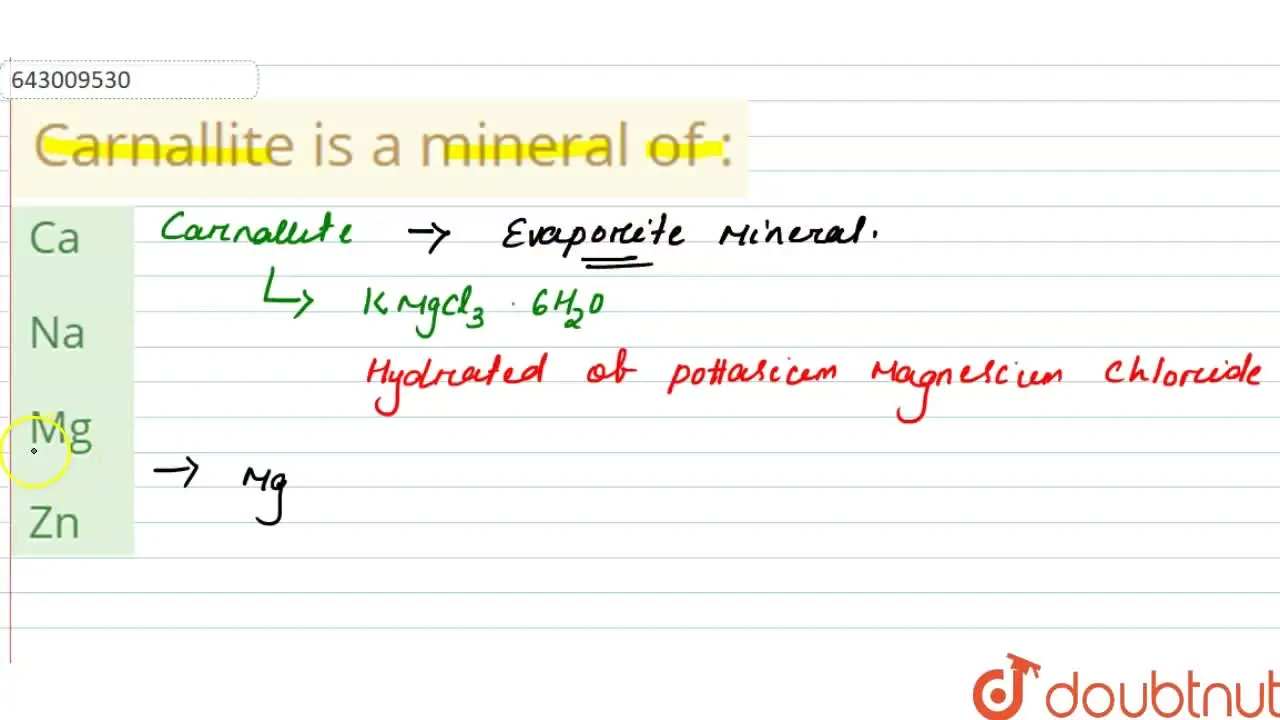 643009530
Carnallite is a mineral of :
Ca
Carnallite → Evaporite Mineral.
↳ KMgCl₃ · 6H₂O
Na
Hydrated of pottasium Magnesium Chloride
Mg
→ Mg
Zn
doubtnut